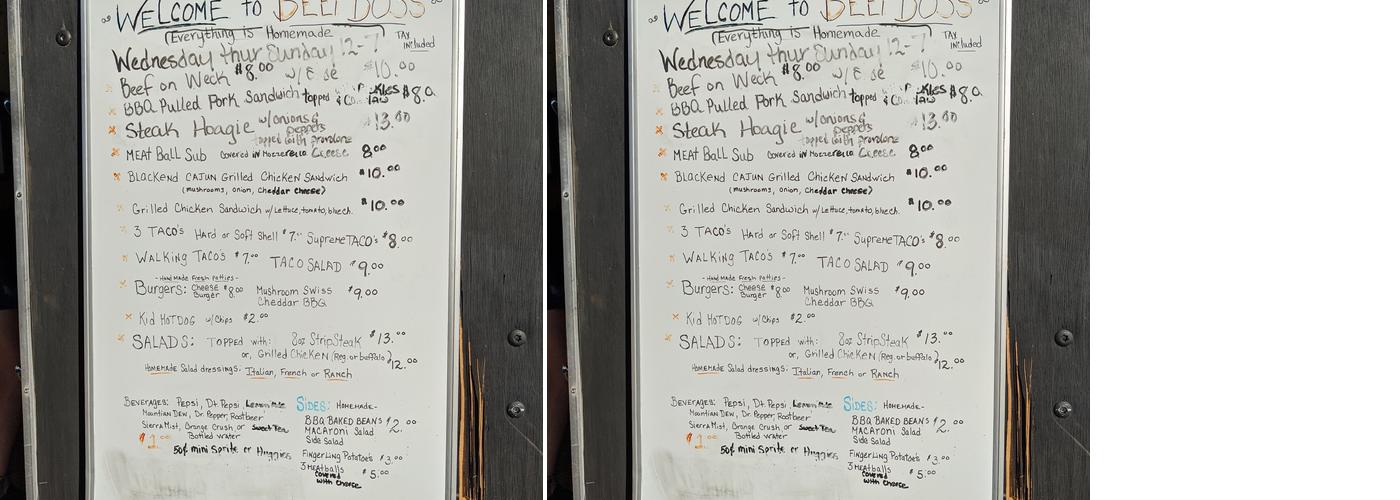 WELCOME to BEEF BOSS
(Everything is Homemade
TAX included
Wednesday thur Sunday 12-7
Beef on Weck $8.00 w/ $10.00
BBQ Pulled Pork Sandwich topped $8.0
Steak Hoagie w/onions & peppers topped with provolone $13.00
MEAT Ball Sub covered in Mozzerella Cheese 8.00
Blackend CAJUN Grilled Chicken Sandwich $10.00
(mushrooms, onion, cheddar cheese)
Grilled Chicken Sandwich w/Lettuce, tomato, bluech. $10.00
3 TACO's Hard or Soft Shell $7.00 Supreme TACO's $8.00
WALKING TACO's $7.00 TACO SALAD $9.00
- Hand Made Fresh Patties -
Burgers: Cheese Burger $8.00 Mushroom Swiss $9.00
Cheddar BBQ
Kid HOTDOG w/chips $2.00
SALADS: Topped with: 8oz Strip Steak $13.00
or, Grilled Chicken (Reg. or buffalo) $12.00
HOMEMADE Salad dressings: Italian, French or RANCH
BEVERAGES: Pepsi, Dt Pepsi, Lemonade
Mountian Dew, Dr. Pepper, Rootbeer
Sierra Mist, Orange Crush or Sweet Tea
Bottled water
$1.00
50¢ mini Sprite or Huggies
SIDES: HOMEMADE-
BBQ BAKED BEANS $2.00
MACARONI Salad
Side Salad
Fingerling Potatoe's $3.00
3 Meatballs covered with cheese $5.00
WELCOME to BEEF BOSS
(Everything is Homemade
TAX included
Wednesday thur Sunday 12-7
Beef on Weck $8.00 w/ $10.00
BBQ Pulled Pork Sandwich topped $8.0
Steak Hoagie w/onions & peppers topped with provolone $13.00
MEAT Ball Sub covered in Mozzerella Cheese 8.00
Blackend CAJUN Grilled Chicken Sandwich $10.00
(mushrooms, onion, cheddar cheese)
Grilled Chicken Sandwich w/Lettuce, tomato, bluech. $10.00
3 TACO's Hard or Soft Shell $7.00 Supreme TACO's $8.00
WALKING TACO's $7.00 TACO SALAD $9.00
- Hand Made Fresh Patties -
Burgers: Cheese Burger $8.00 Mushroom Swiss $9.00
Cheddar BBQ
Kid HOTDOG w/chips $2.00
SALADS: Topped with: 8oz Strip Steak $13.00
or, Grilled Chicken (Reg. or buffalo) $12.00
HOMEMADE Salad dressings: Italian, French or RANCH
BEVERAGES: Pepsi, Dt Pepsi, Lemonade
Mountian Dew, Dr. Pepper, Rootbeer
Sierra Mist, Orange Crush or Sweet Tea
Bottled water
$1.00
50¢ mini Sprite or Huggies
SIDES: HOMEMADE-
BBQ BAKED BEANS $2.00
MACARONI Salad
Side Salad
Fingerling Potatoe's $3.00
3 Meatballs covered with cheese $5.00